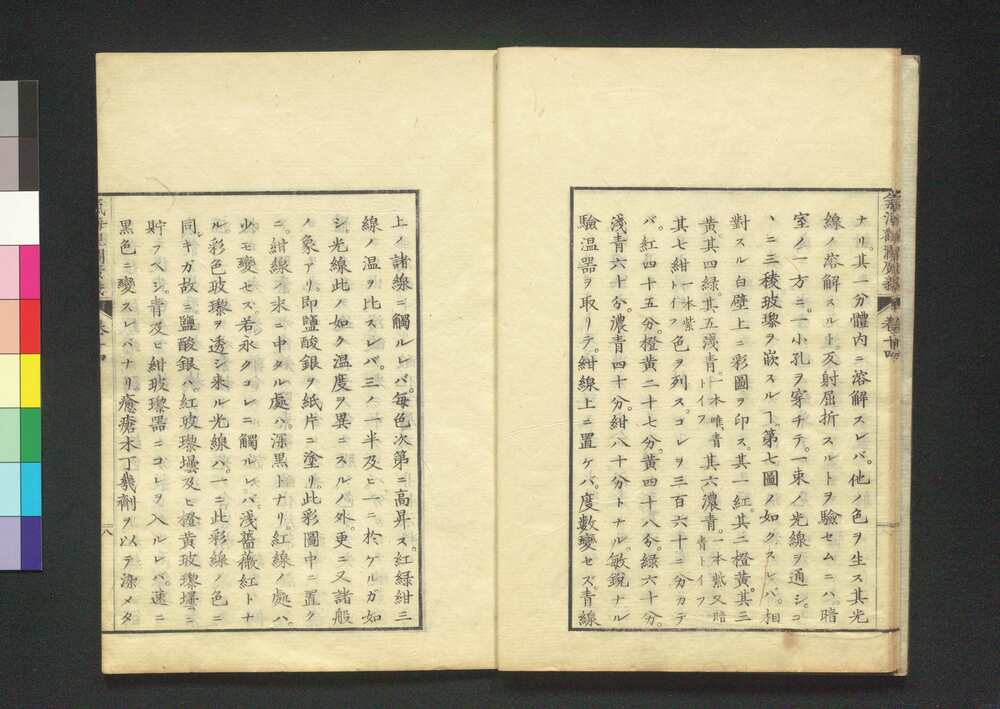 ナリ。其一分體内ニ溶解スレバ。他ノ色ヲ生ス其光
線ノ溶解スルト反射屈折スルトヲ驗セムニハ暗
室ノ一方ニ。一小孔ヲ穿チテ。一束ノ光線ヲ通シ。コ
ヽニ三稜玻瓈ヲ嵌スルヿ第七圖ノ如クスレバ。相
對スル白壁上ニ彩圖ヲ印ス。其一紅。其二橙黄。其三
黄。其四緑。其五淺青。一本唯青トイフ其六濃青。一本紫又暗青トイフ
其七紺一本紫トイフ色ヲ列ス。コレヲ三百六十ニ分カテ
バ。紅四十五分。橙黄二十七分。黄四十八分。緑六十分。
淺青六十分。濃青四十分。紺八十分トナル。敏銳ナル
驗温器ヲ取リテ。紺線上ニ置ケバ。度數變セズ。青線
上ノ諸線ニ觸ルレバ。毎色次第ニ高昇ス。紅緑紺三
線ノ温ヲ比スレバ。三ノ一半及ヒ一ニ於ケルガ如
シ。光線此ノ如ク温度ヲ異ニスルノ外。更ニ又諸般
ノ象アリ。即鹽酸銀ヲ紙片ニ塗リ。此彩圖中ニ置ク
ニ。紺線ノ末ニ中タル處ハ。深黒トナリ。紅線ノ處ハ。
少モ變セズ。若永クコレニ觸ルレバ。淺薔薇紅トナ
ル。彩色玻瓈ヲ透シ来ル光線ハ。一ニ此彩線ノ色ニ
同キガ故ニ鹽酸銀ハ。紅玻瓈壜及ヒ橙黄玻瓈壜ニ
貯フヘシ。青及ヒ紺玻瓈器ニコレヲ入ルレバ。速ニ
黒色ニ變スレバナリ癒瘡木丁幾劑ヲ以テ染メタ
卷十四
八